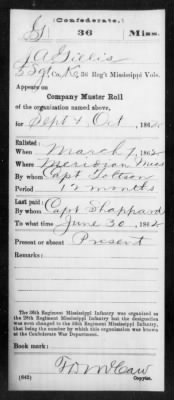 (Confederate.)
G 36 Miss.
J A Gillis
Co. K, 36 Reg't Mississippi Vols.
Appears on
Company Muster Roll
of the organization named above,
for Sept & Oct, 1862.
Enlisted:
When March 7, 1862
Where Meridian Miss
By whom Capt
Period 12 months
Last paid:
By whom Capt Shappard
To what time June 30, 1862
Present or absent Present
Remarks:
The 36th Regiment Mississippi Infantry was organized as
the 36th Regiment Mississippi Infantry but the designation
was changed to the 36th Regiment Mississippi Infantry,
that being the number by which this organization was known
at the Confederate War Department.
Book mark:
(642)
F D McCaw
Copyist.